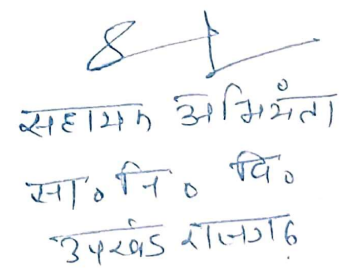 सहायक अभियंता
सा० नि० वि०
उपखंड राजगढ़